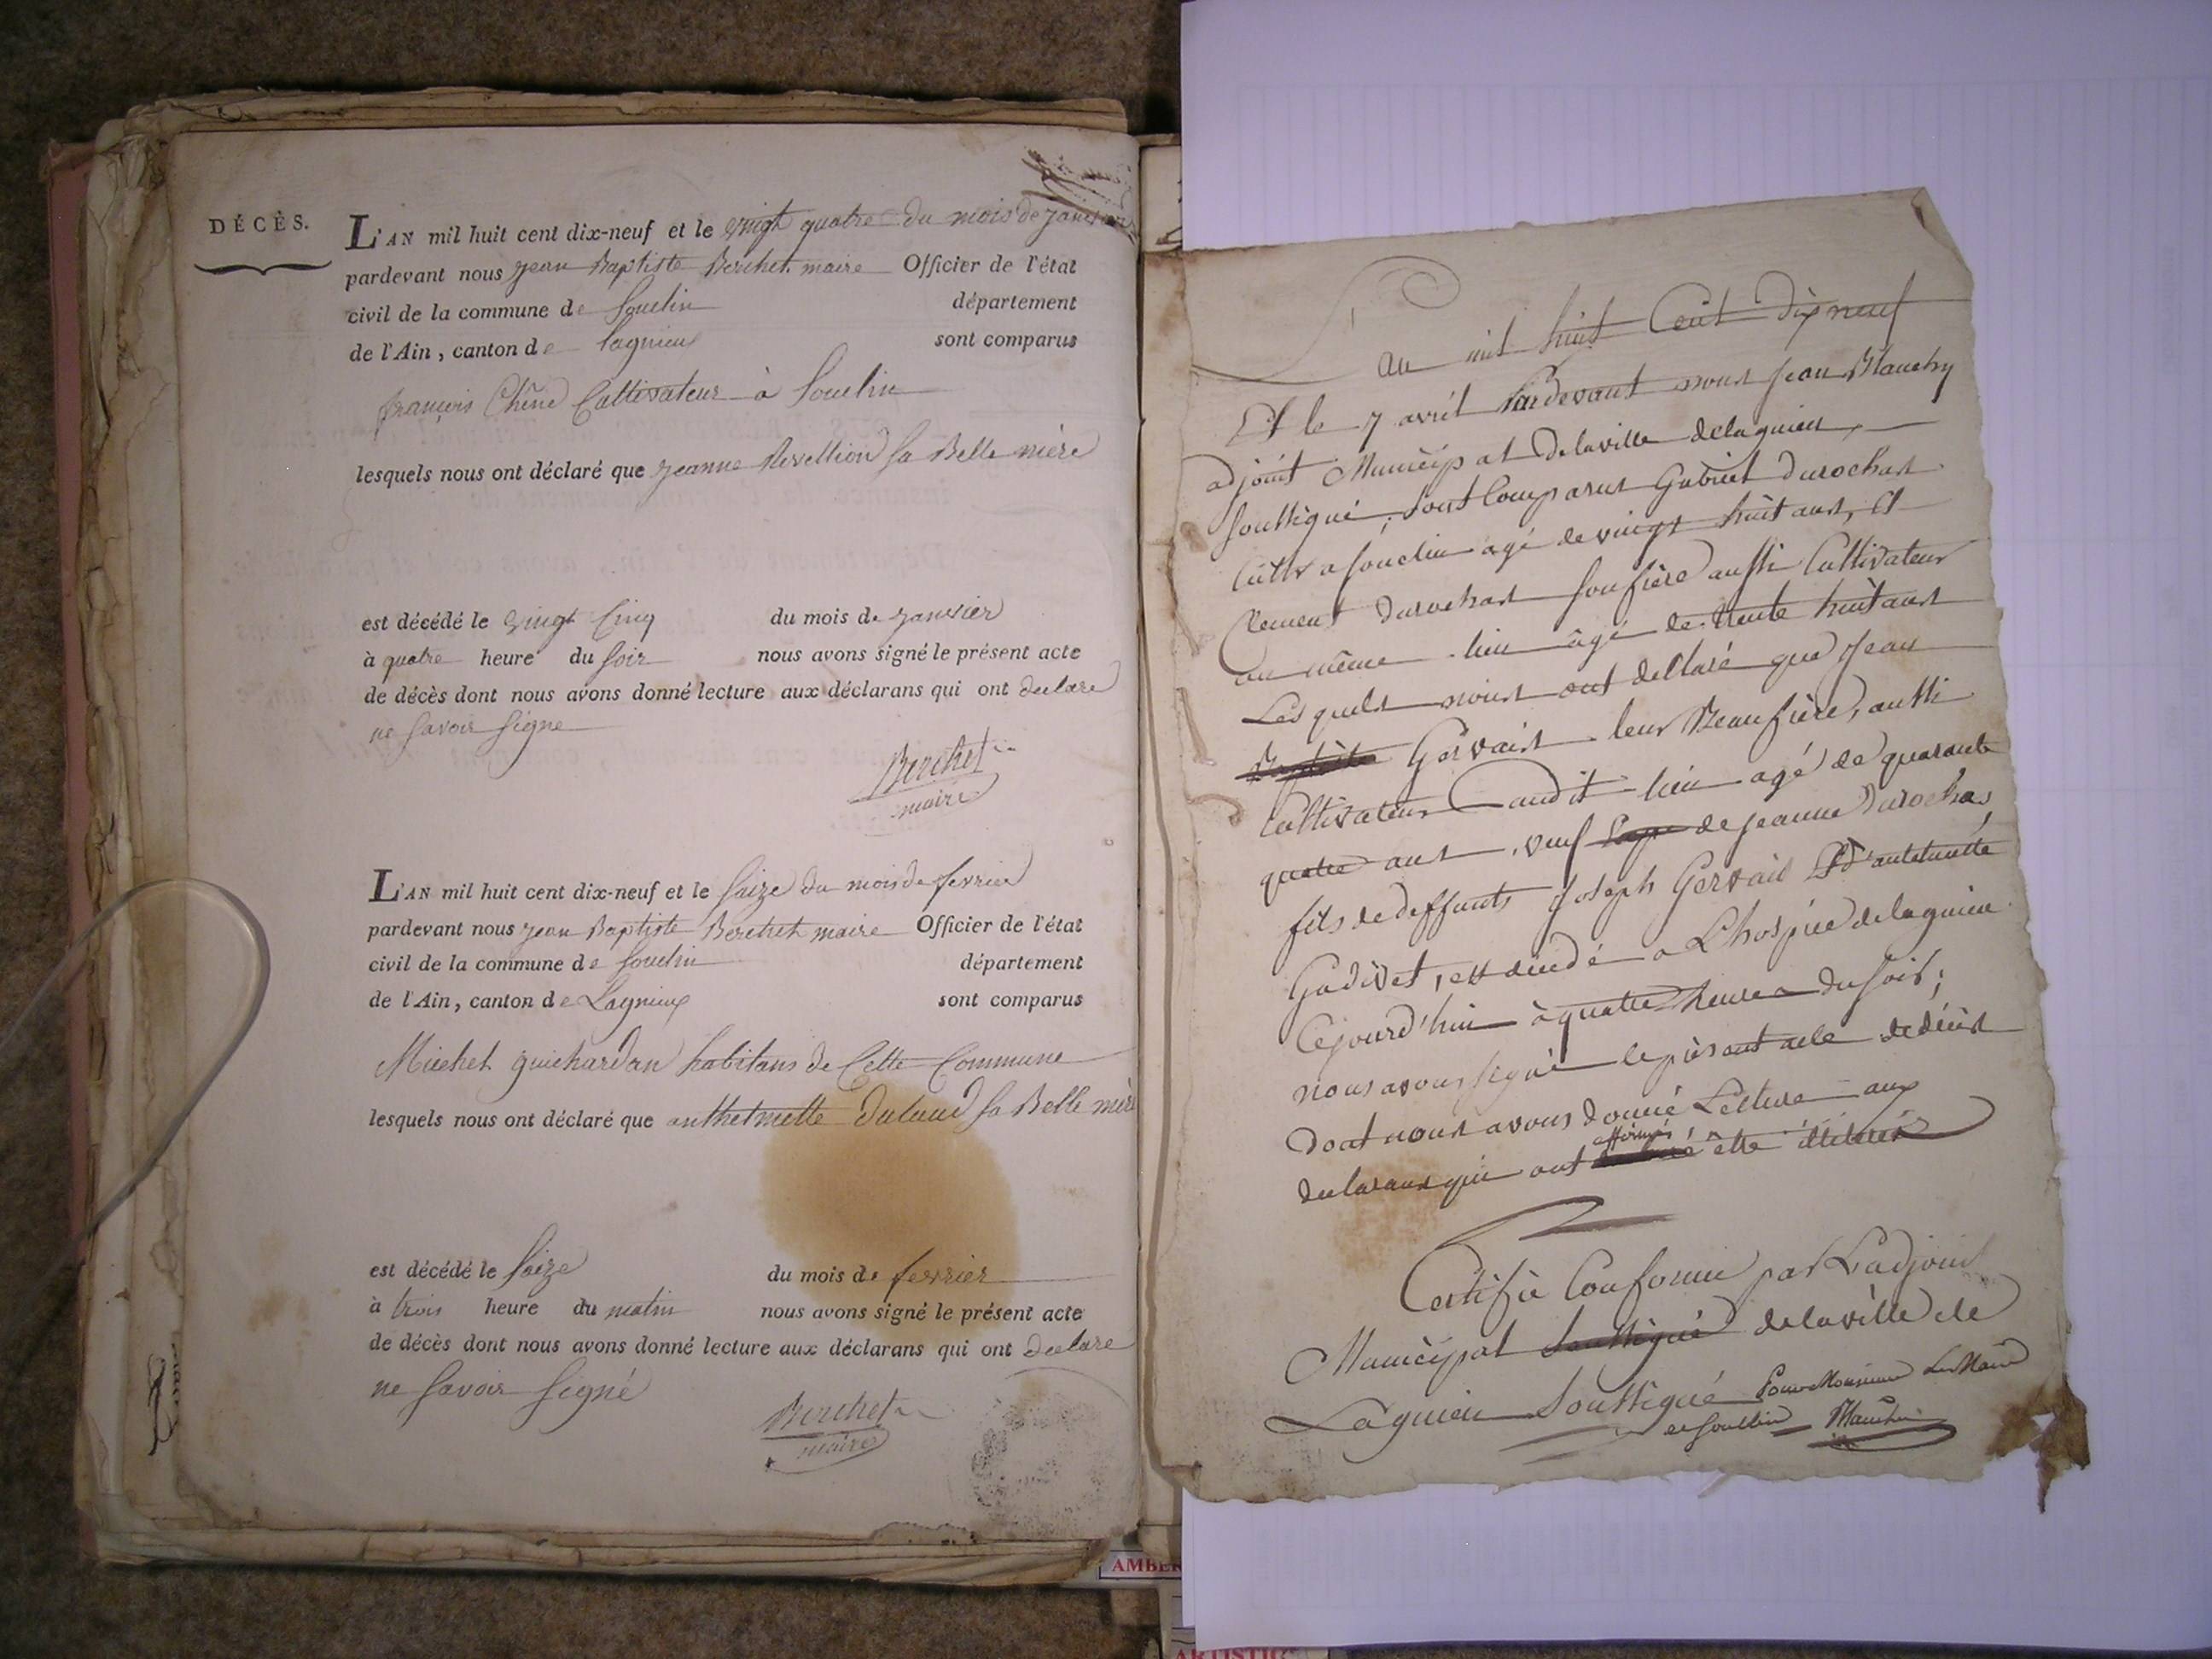 DÉCÈS.
L'AN mil huit cent dix-neuf et le vingt quatre du mois de janvier
pardevant nous jean Baptiste Berchet maire Officier de l'état
civil de la commune de Souclin département
de l'Ain, canton de lagnieux sont comparus
françois Chêne Cultivateur à Souclin
lesquels nous ont déclaré que jeanne Revellion sa Belle mère
est décédé le vingt Cinq du mois de janvier
à quatre heure du soir nous avons signé le présent acte
de décès dont nous avons donné lecture aux déclarans qui ont declare
ne savoir signe
Berchet
maire
L'AN mil huit cent dix-neuf et le saize du mois de fevrier
pardevant nous jean Baptiste Berchet maire Officier de l'état
civil de la commune de souclin département
de l'Ain, canton de Lagnieux sont comparus
Michel guichardan habitans de Cette Commune
lesquels nous ont déclaré que anthelmette sa Belle mère
est décédé le saize du mois de fevrier
à trois heure du matin nous avons signé le présent acte
de décès dont nous avons donné lecture aux déclarans qui ont declare
ne savoir signé
Berchet
maire
L'an mil huit Cent dix neuf
Et le 7 avril Pardevant nous Jean Blanchy
adjoint Municipal de la ville de lagnieu,
soussigné, sont Comparus Gabriel durochas
Cultr a souclin agé de vingt huit ans, et
Clement durochas son frère aussi Cultivateur
au même lieu âgé de trente huit ans
Lesquels nous ont declaré que Jean
Baptiste Gervais leur Beau frère, aussi
Cultivateur audit lieu agé de quarante
quatre ans, veuf de jeanne durochas,
fils de deffunts Joseph Gervais Et d'antelmette
Gudivet, est décédé a L'hospice de lagnieu
Cejourd'hui à quatre heures du soir;
nous avons signé le présent acte de décès
dont nous avons donné Lecture aux
declarans qui ont affirmés être illitérés
Certifié Conforme par L'adjoint
Municipal soussigné de la ville de
Lagnieu Soussigné Pour Monsieur Le Maire
de Souclin Blanchy
AMBER
ARTISTIC